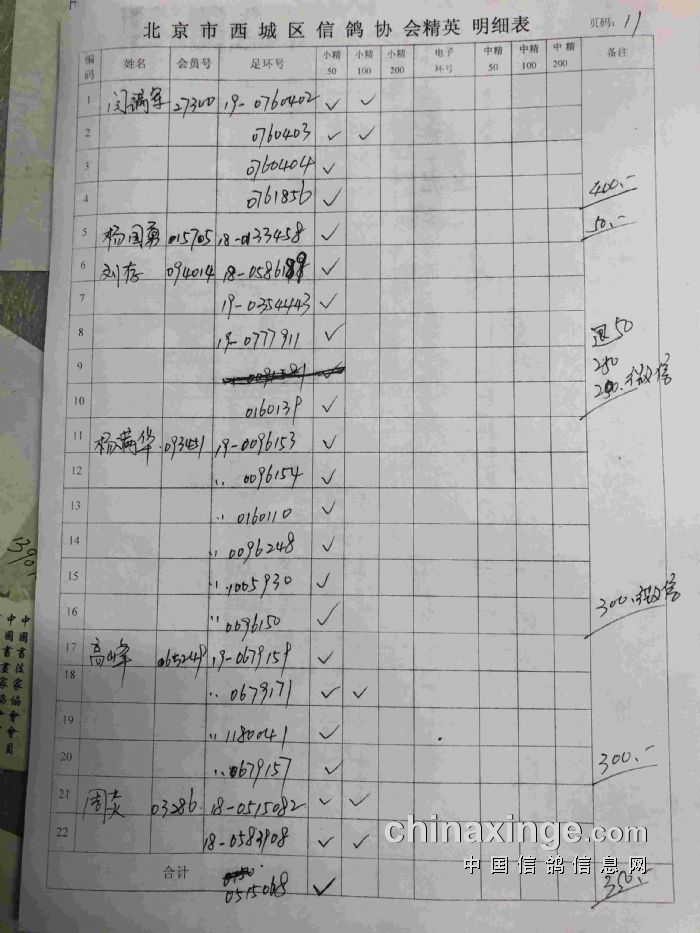 北京市西城区信鸽协会精英 明细表 页码: 11
编码 姓名 会员号 足环号 小精50 小精100 小精200 电子环号 中精50 中精100 中精200 备注
1 27300 19-0760402 ✓ ✓
2 0760403 ✓ ✓
3 0760404 ✓
4 0761856 ✓ 400.-
5 杨国勇 015705 18-0133458 ✓ 50.-
6 刘存 094014 18-0586189 ✓
7 19-0354443 ✓
8 19-0777911 ✓ 退50
9 ✓ 250
10 0160139 ✓ 200.微信
11 杨满华 093451 19-0096153 ✓
12 〃 0096154 ✓
13 〃 0160110 ✓
14 〃 0096248 ✓
15 〃 1005930 ✓
16 〃 0096150 ✓ 300.微信
17 高峰 065249 19-0679159 ✓
18 〃 0679171 ✓ ✓
19 〃 1180041 ✓
20 〃 0679157 ✓ 300.-
21 周英 03286. 18-0515082 ✓ ✓
22 18-0583908 ✓ ✓
合计 0515068 ✓ 350.-
chinaxinge.com
中国信鸽信息网
1390
中國書法家協會會員
中國書畫家協會